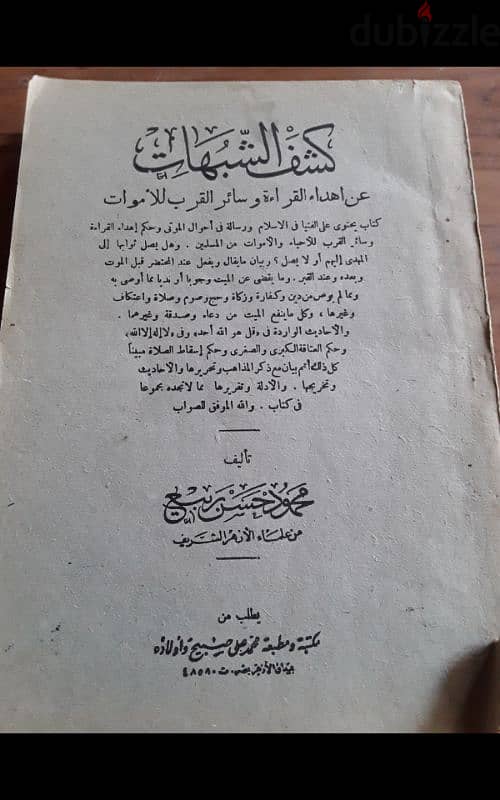 dubizzle
كشف الشبهات
عن اهداء القراءة وسائر القرب للأموات
كتاب يحتوى على الفتيا فى الاسلام ورسالة فى أحوال الموتى وحكم إهداء القراءة
وسائر القرب للأحياء والأموات من المسلمين . وهل يصل ثوابها إلى
المهدى إليهم أو لا يصل ؟ وبيان ما يقال ويفعل عند المحتضر قبل الموت
وبعده وعند القبر . وما يقضى عن الميت وجوبا أو ندبا مما أوصى به
ومما لم يوص من دين وكفارة وزكاة وحج وصوم وصلاة واعتكاف
وغيرها ، وكل ما ينفع الميت من دعاء وصدقة وغيرهما .
والأحاديث الواردة فى «قل هو الله أحد» وفى «لا إله إلا الله»
وحكم العتاقة الكبرى والصغرى وحكم إسقاط الصلاة مبيناً
كل ذلك أتم بيان مع ذكر المذاهب وتحريرها والأحاديث
وتخريجها . والأدلة وتقريرها مما لا تجده مجموعا
فى كتاب . والله الموفق للصواب
تأليف
محمود حسن ربيع
من علماء الأزهر الشريف
يطلب من
مكتبة ومطبعة محمد على صبيح وأولاده
بميدان الأزهر بمصر . ت ٤٨٥٨٠